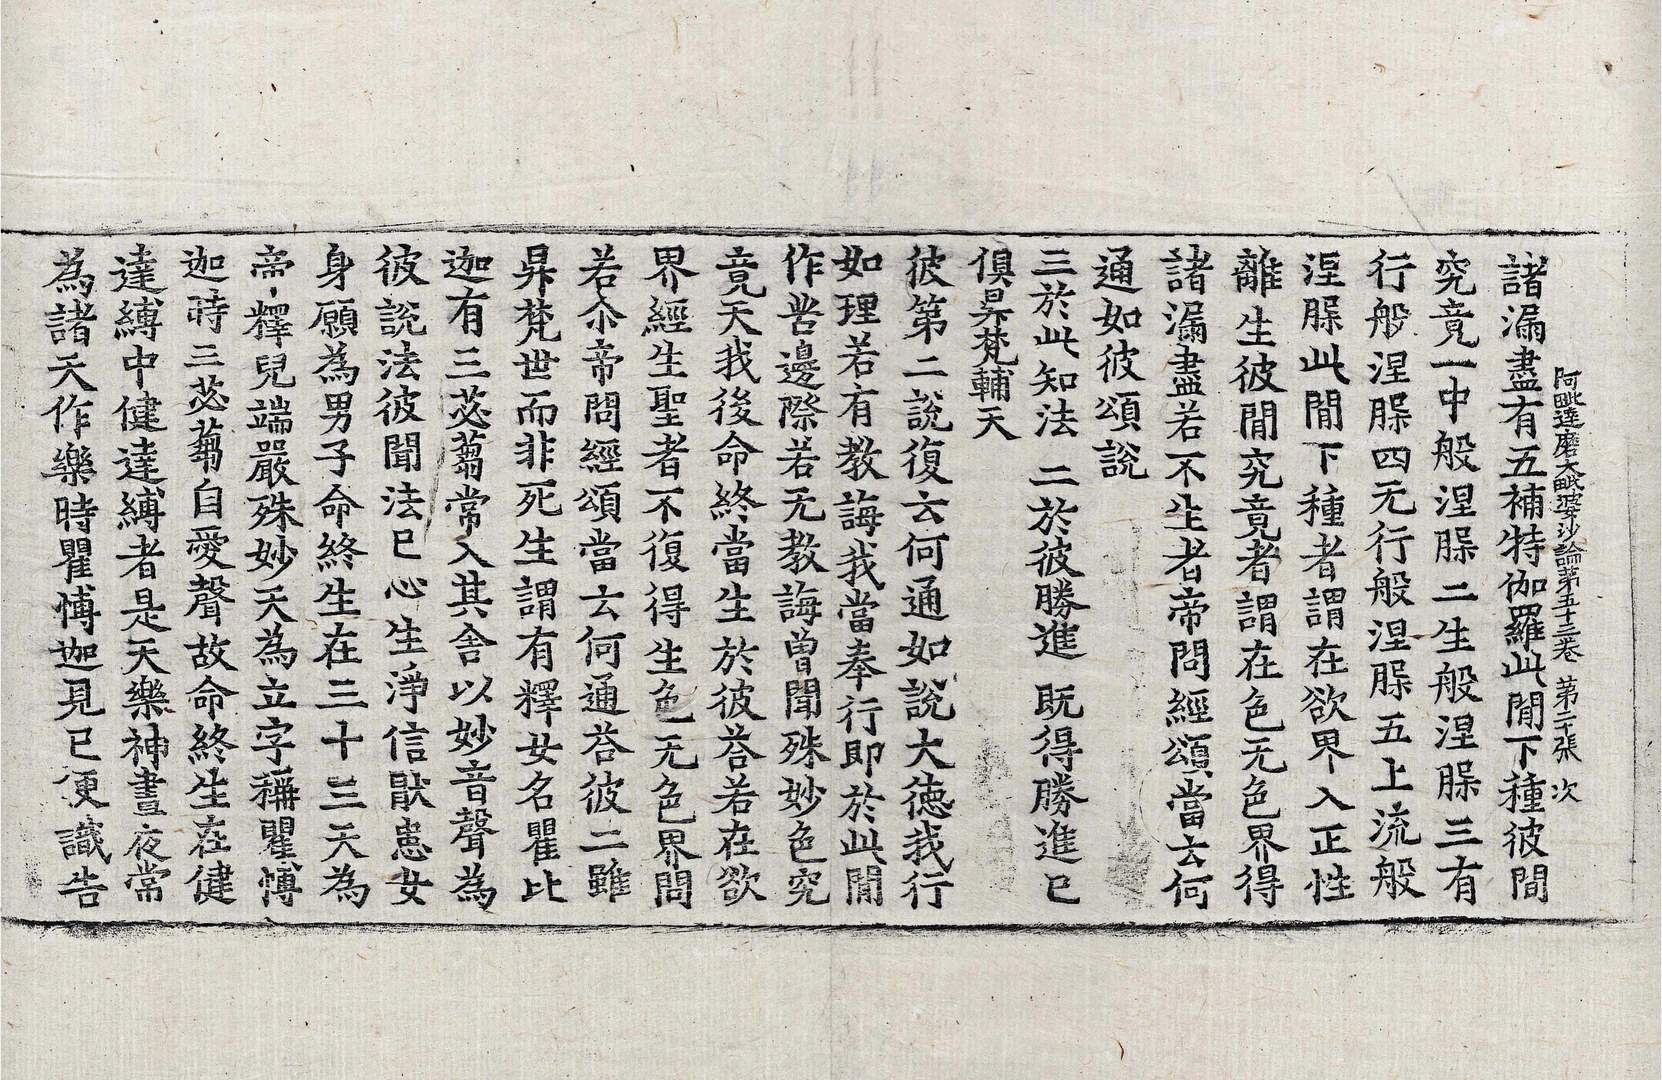 阿毗達磨大毗婆沙論第五十三卷 第二十張 次
諸漏盡有五補特伽羅此閒下種彼閒
究竟一中般涅腂二生般涅腂三有
行般涅腂四无行般涅腂五上流般
涅腂此閒下種者謂在欲界入正性
離生彼閒究竟者謂在色无色界得
諸漏盡若不生者帝問經頌當云何
通如彼頌說
三於此知法 二於彼勝進 既得勝進已
俱昇梵輔天
彼第二說復云何通如說大德我行
如理若有教誨我當奉行即於此閒
作苦邊際若无教誨曾聞殊妙色究
竟天我後命終當生於彼荅若在欲
界經生聖者不復得生色无色界問
若尒帝問經頌當云何通荅彼二雖
昇梵世而非死生謂有釋女名瞿比
迦有三苾蒭常入其舍以妙音聲為
彼說法彼聞法已心生淨信猒患女
身願為男子命終生在三十三天為
帝釋兒端嚴殊妙天為立字稱瞿愽
迦時三苾蒭自愛聲故命終生在健
達縛中健達縛者是天樂神晝夜常
為諸天作樂時瞿愽迦見已便識告